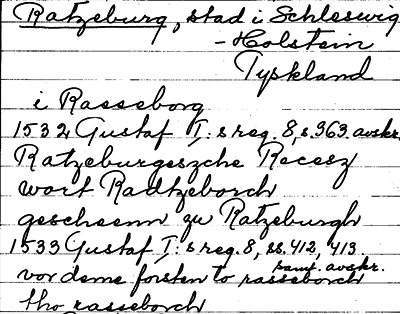 Ratzeburg, stad i Schleswig
-Holstein
Tyskland
i Rasseborg
1532 Gustaf I:s reg. 8, s. 363. avskr.
Ratzeburgeszche Recesz
wort Radtzeborch
gescheenn zu Ratzeburgh
1533 Gustaf I:s reg. 8, ss. 412, 413
samt. avskr.
vor deme forsten to rasseborch
tho rasseborch